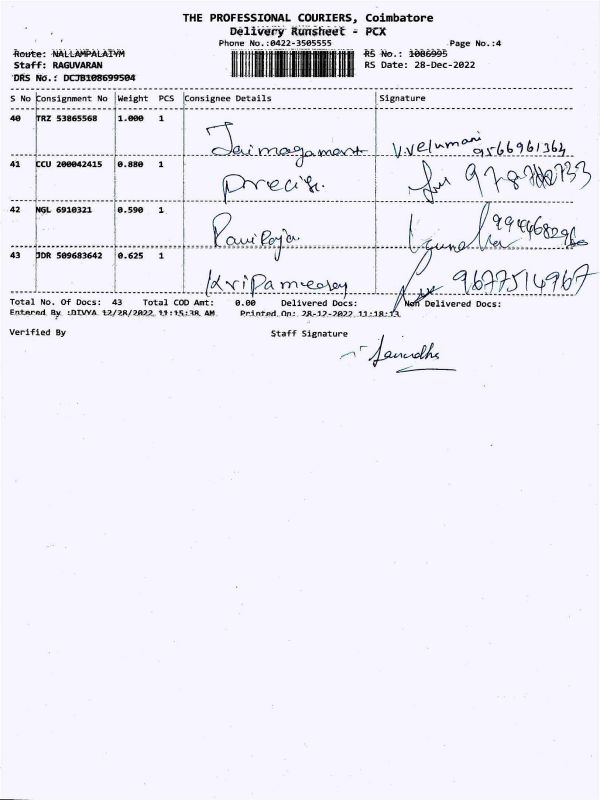 THE PROFESSIONAL COURIERS, Coimbatore
Delivery Runsheet - PCX
Phone No.:0422-3505555
Page No.:4
Route: NALLAMPALAIYM
RS No.: 1086995
Staff: RAGUVARAN
RS Date: 28-Dec-2022
DRS No.: DCJB108699504
S No Consignment No Weight PCS Consignee Details Signature
40 TRZ 53865568 1.000 1
V.Velumani
9566961364
41 CCU 200042415 0.880 1
42 NGL 6910321 0.590 1
Raviraja
43 JDR 509683642 0.625 1
9677514967
Total No. Of Docs: 43 Total COD Amt: 0.00 Delivered Docs: Non Delivered Docs:
Entered By :DIVYA 12/28/2022 11:15:38 AM Printed On: 28-12-2022 11:18:13
Verified By Staff Signature